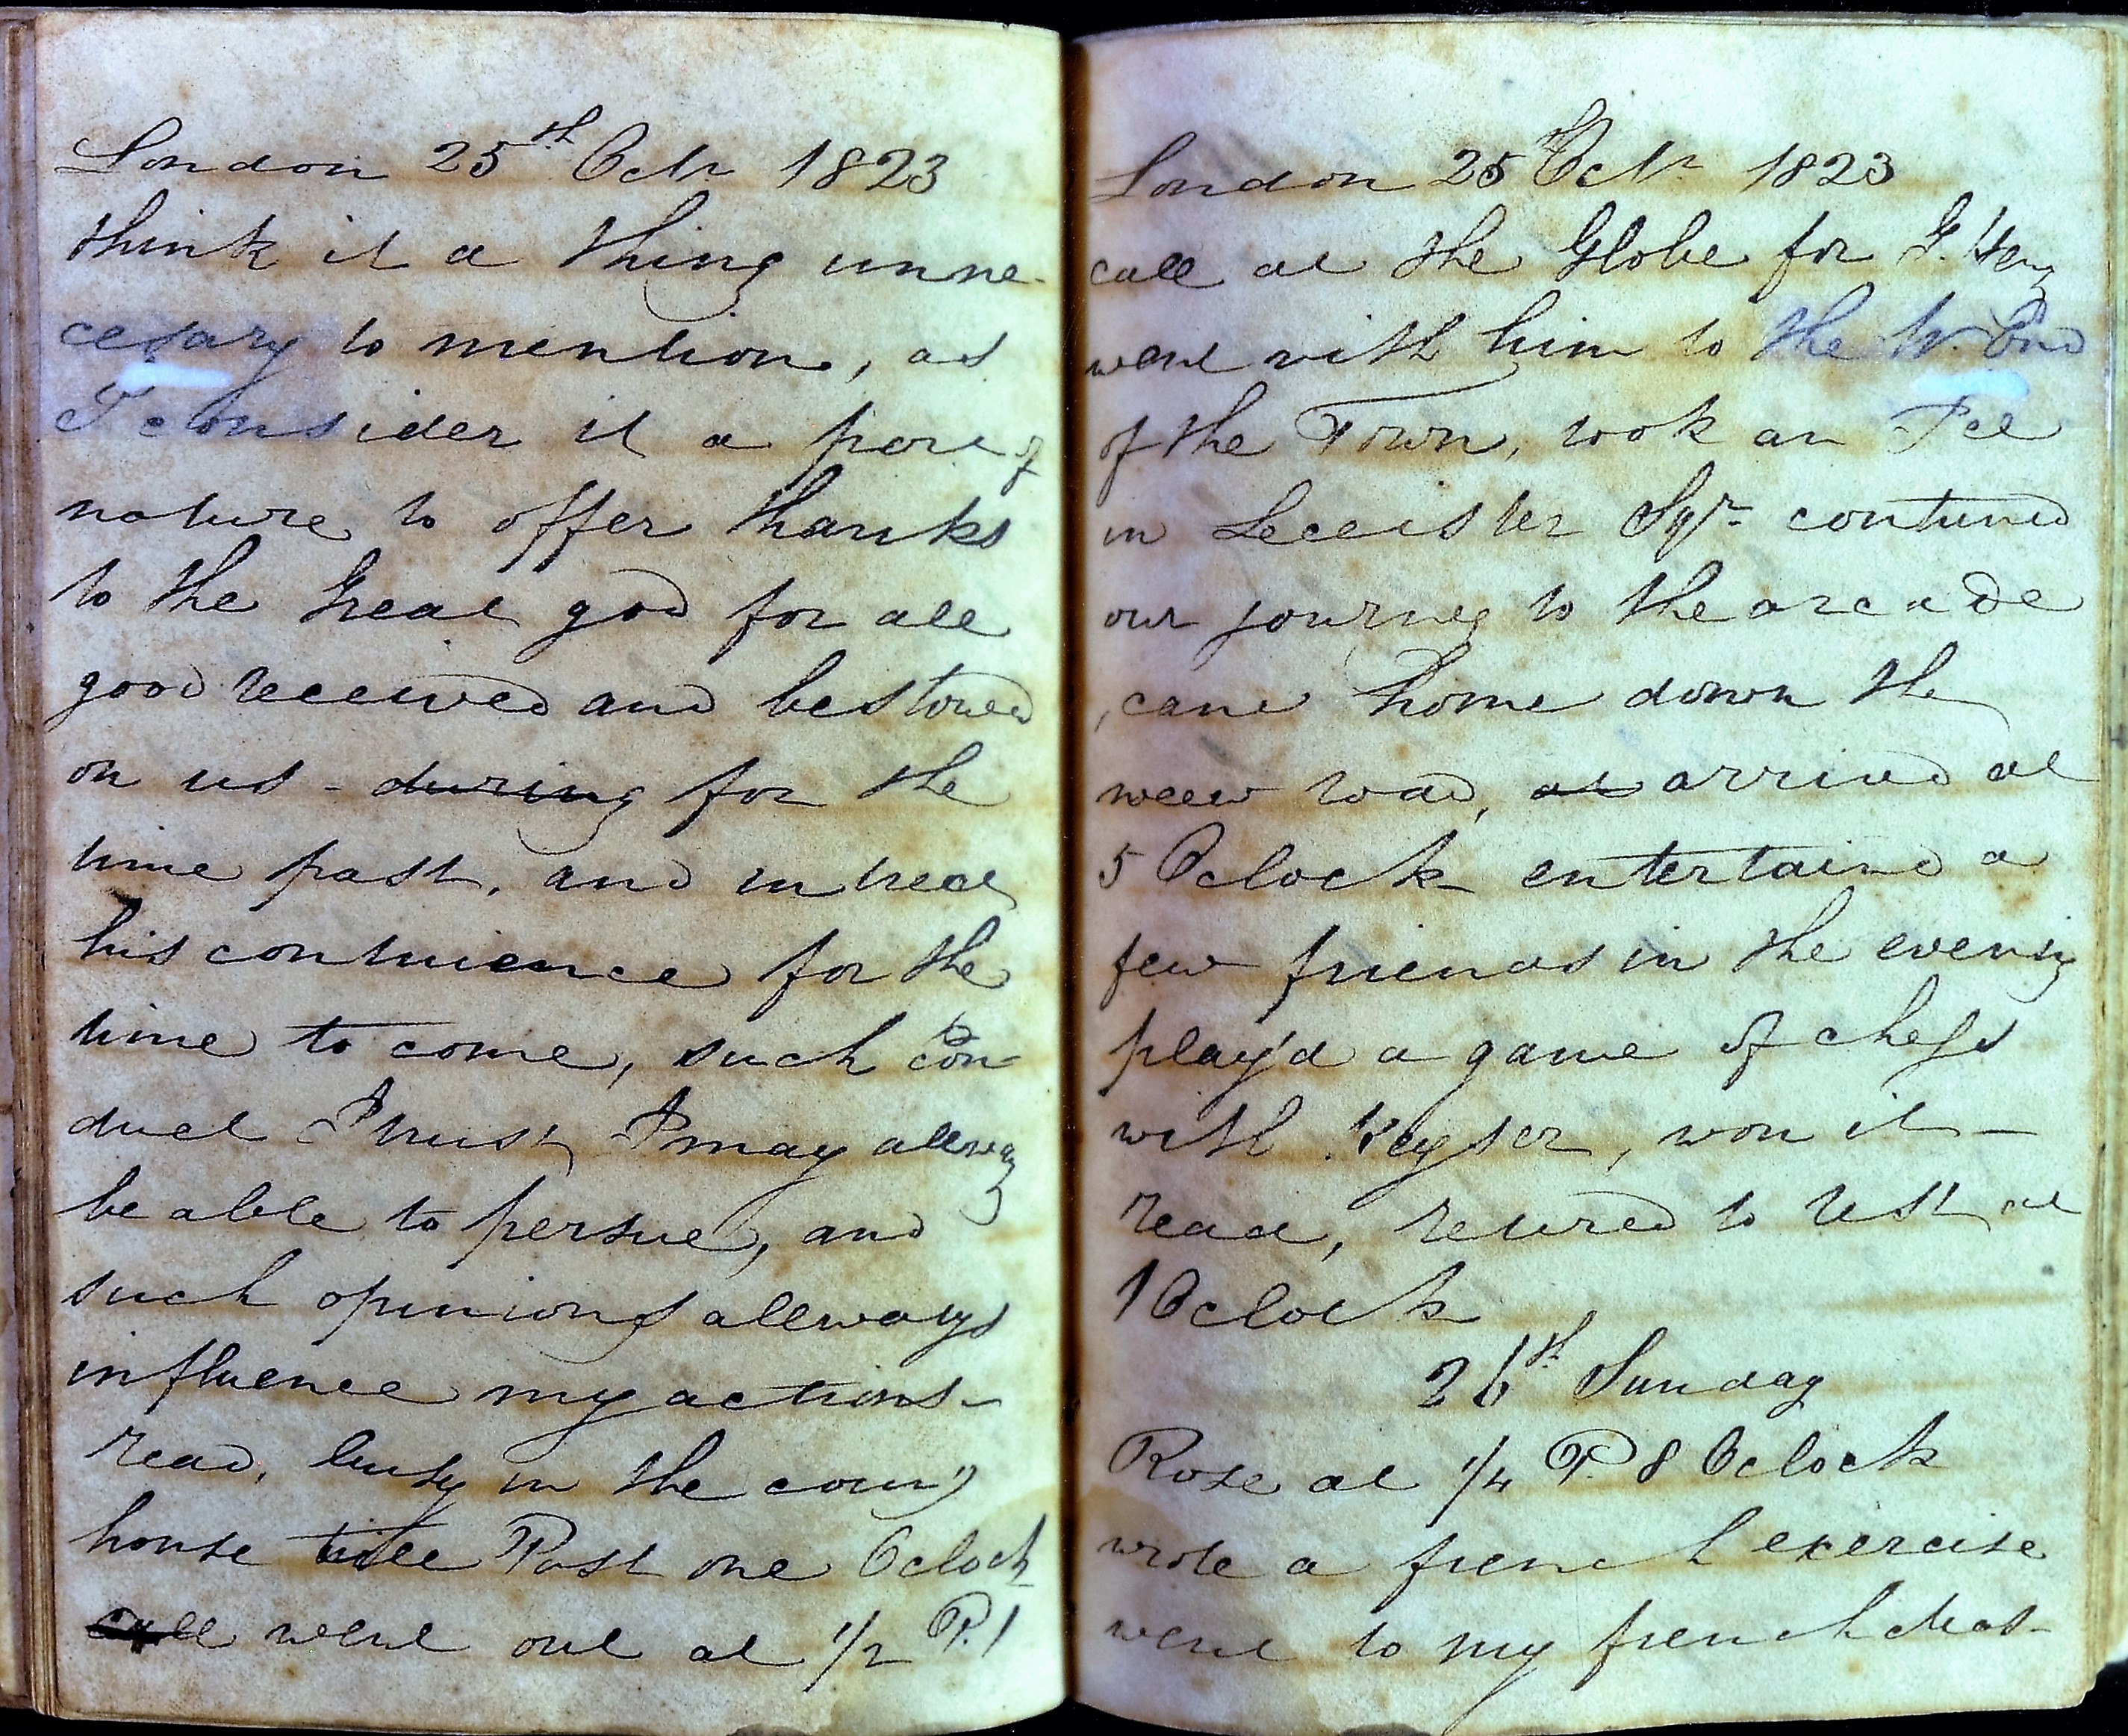 London 25th Octr 1823
think it a thing unne-
cesary to mention, as
I consider it a part of
nature to offer thanks
to the Great god for all
good received and bestowed
on us - during for the
time past, and intreat
his contuience for the
time to come, such con-
duct I trust I may allway
be able to persue, and
such opinions allways
influence my actions -
read, busy in the coun
house till Past one Oclock
call went out at 1/2 P. 1
London 25th Octr 1823
call at the Globe for G. Henry
went with him to the W. End
of the Town, took an Ice
in Leceister Sqr contuned
our journey to the arcade
, came home down the
neew road, at arrived at
5 Oclock entertained a
few friends in the evening
play'd a game of chess
with Keyser, won it -
read, retired to rest at
1 Oclock
26th Sunday
Rose at 1/4 P. 8 Oclock
wrote a french exercise
went to my french Mas-